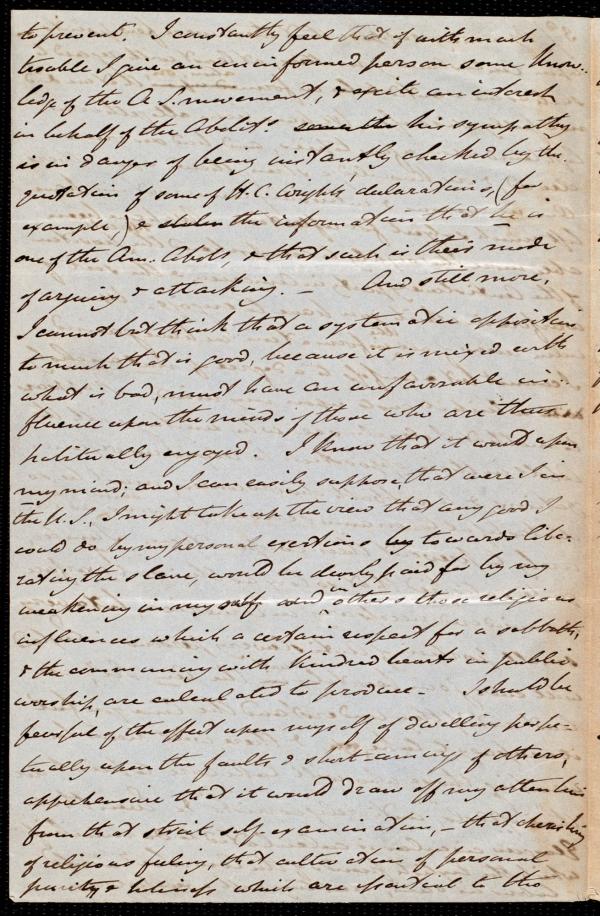 to prevent. I constantly feel that if with much
trouble I give an uninformed person some know-
ledge of the A. S. movement, & excite an interest
in behalf of the Abolts. his sympathy
is in danger of being instantly checked by the
quotation of some of H. C. Wright's declarations, (for
example,) & the information that he is
one of the Am. Abols, & that such is their mode
of arguing & attacking. — And still more,
I cannot but think that a systematic opposition
to much that is good, because it is mixed with
what is bad, must have an unfavorable in-
fluence upon the minds of those who are thus
habitually engaged. I know that it would upon
my mind; and I can easily suppose, that were I in
the U. S., I might take up the view that any good I
could do by my personal exertions by towards libe-
rating the slave, would be dearly paid for by my
weakening in my self and in others those religious
influences which a certain respect for a sabbath,
& the communing with kindred hearts in public
worship, are calculated to produce. I should be
fearful of the effect upon myself of dwelling perpe-
tually upon the faults & short-comings of others,
apprehensive that it would draw off my attention
from that strict self-examination, — that cherishing
of religious feeling, that cultivation of personal
purity & holiness which are essential to the